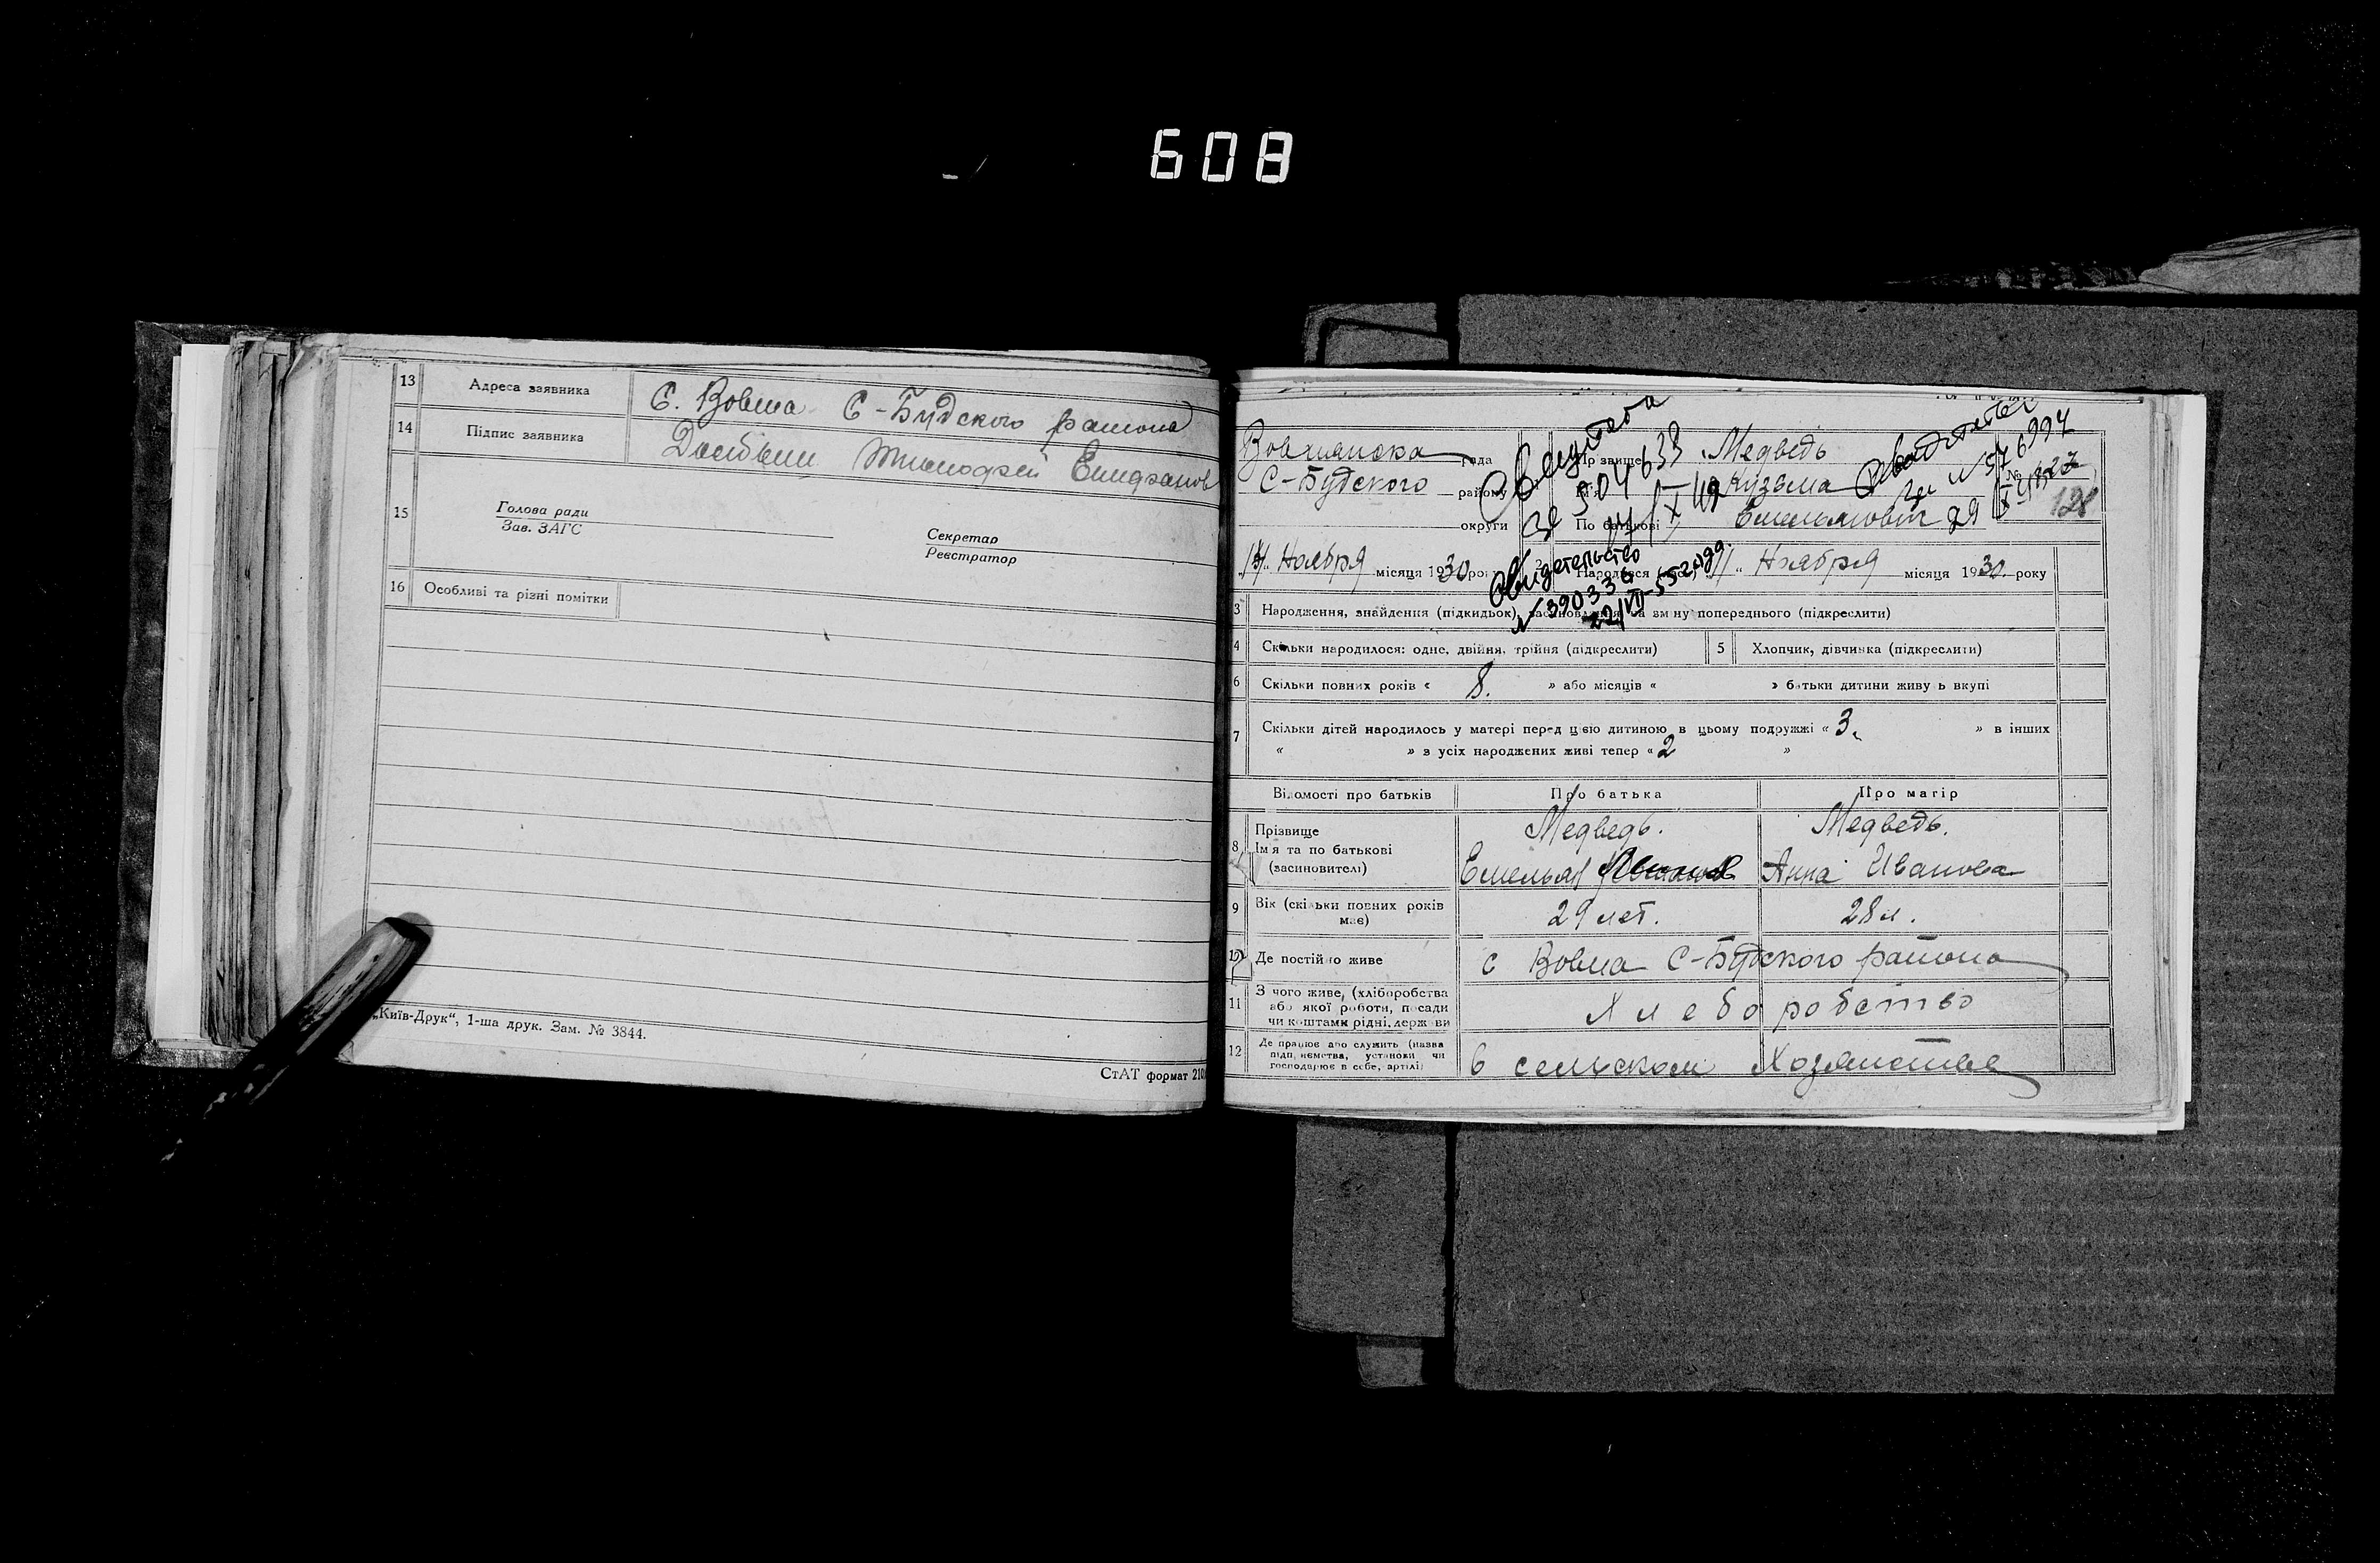 608
13 Адреса заявника С. Вовна С-Будского района
14 Підпис заявника
15 Голова ради
Зав. ЗАГС
Секретар
Реєстратор
16 Особливі та різні помітки
„Київ-Друк“, 1-ша друк. Зам. № 3844.
СтАТ формат 210
рада
Прізвище Медведь
С-Будского району
Кузьма
округи
По батькові Емельянович
№ 127
128
Ноября місяця 1930 року
Ноября місяця 1930. року
Свидетельство
№ 576994
504633
Свидетельство
№ 390336
3 Народження, знайдення (підкидьок), засиновлення на зміну попереднього (підкреслити)
4 Скільки народилося: одне, двійня, трійня (підкреслити)
5 Хлопчик, дівчинка (підкреслити)
6 Скільки повних років « 8. » або місяців « » батьки дитини живуть вкупі
7 Скільки дітей народилось у матері перед цією дитиною в цьому подружжі « 3 » в інших
« » з усіх народжених живі тепер « 2 »
Відомості про батьків
Про батька
Про матір
8 Прізвище
Імя та по батькові
(засиновителі)
Медведь.
Медведь.
Емельян
Анна Иванова
9 Вік (скільки повних років має)
29 лет.
28 л.
10 Де постійно живе
с Вовна С-Будского района
11 З чого живе, (хліборобства
або якої роботи, посади
чи коштами рідні, держави
Хлеборобство
12 Де працює або служить (назва
підприємства, установи чи
господарює в себе, артілі)
в сельском Хозяйстве